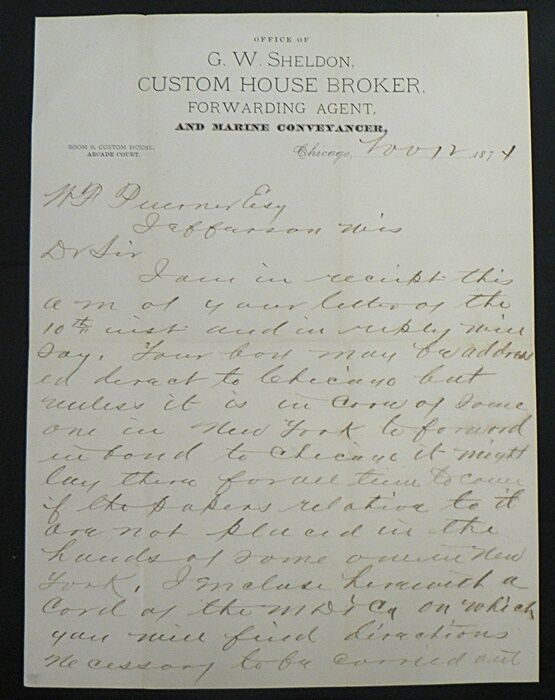 OFFICE OF
G. W. SHELDON,
CUSTOM HOUSE BROKER,
FORWARDING AGENT,
AND MARINE CONVEYANCER,
ROOM 9, CUSTOM HOUSE,
ARCADE COURT.
Chicago, Nov 12 1874
W F Puerner Esq
Jefferson Wis
Dr Sir
I am in reciept this
a m of your letter of the
10th inst and in reply will
say. Your box may be address
ed direct to Chicago but
unless it is in care of some
one in New York to forward
in bond to Chicago it might
lay there for all time to come
if the papers relative to it
are not placed in the
hands of some one in New
York, I enclose herewith a
Card of the M D & Co on which
you will find directions
necessary to be carried out